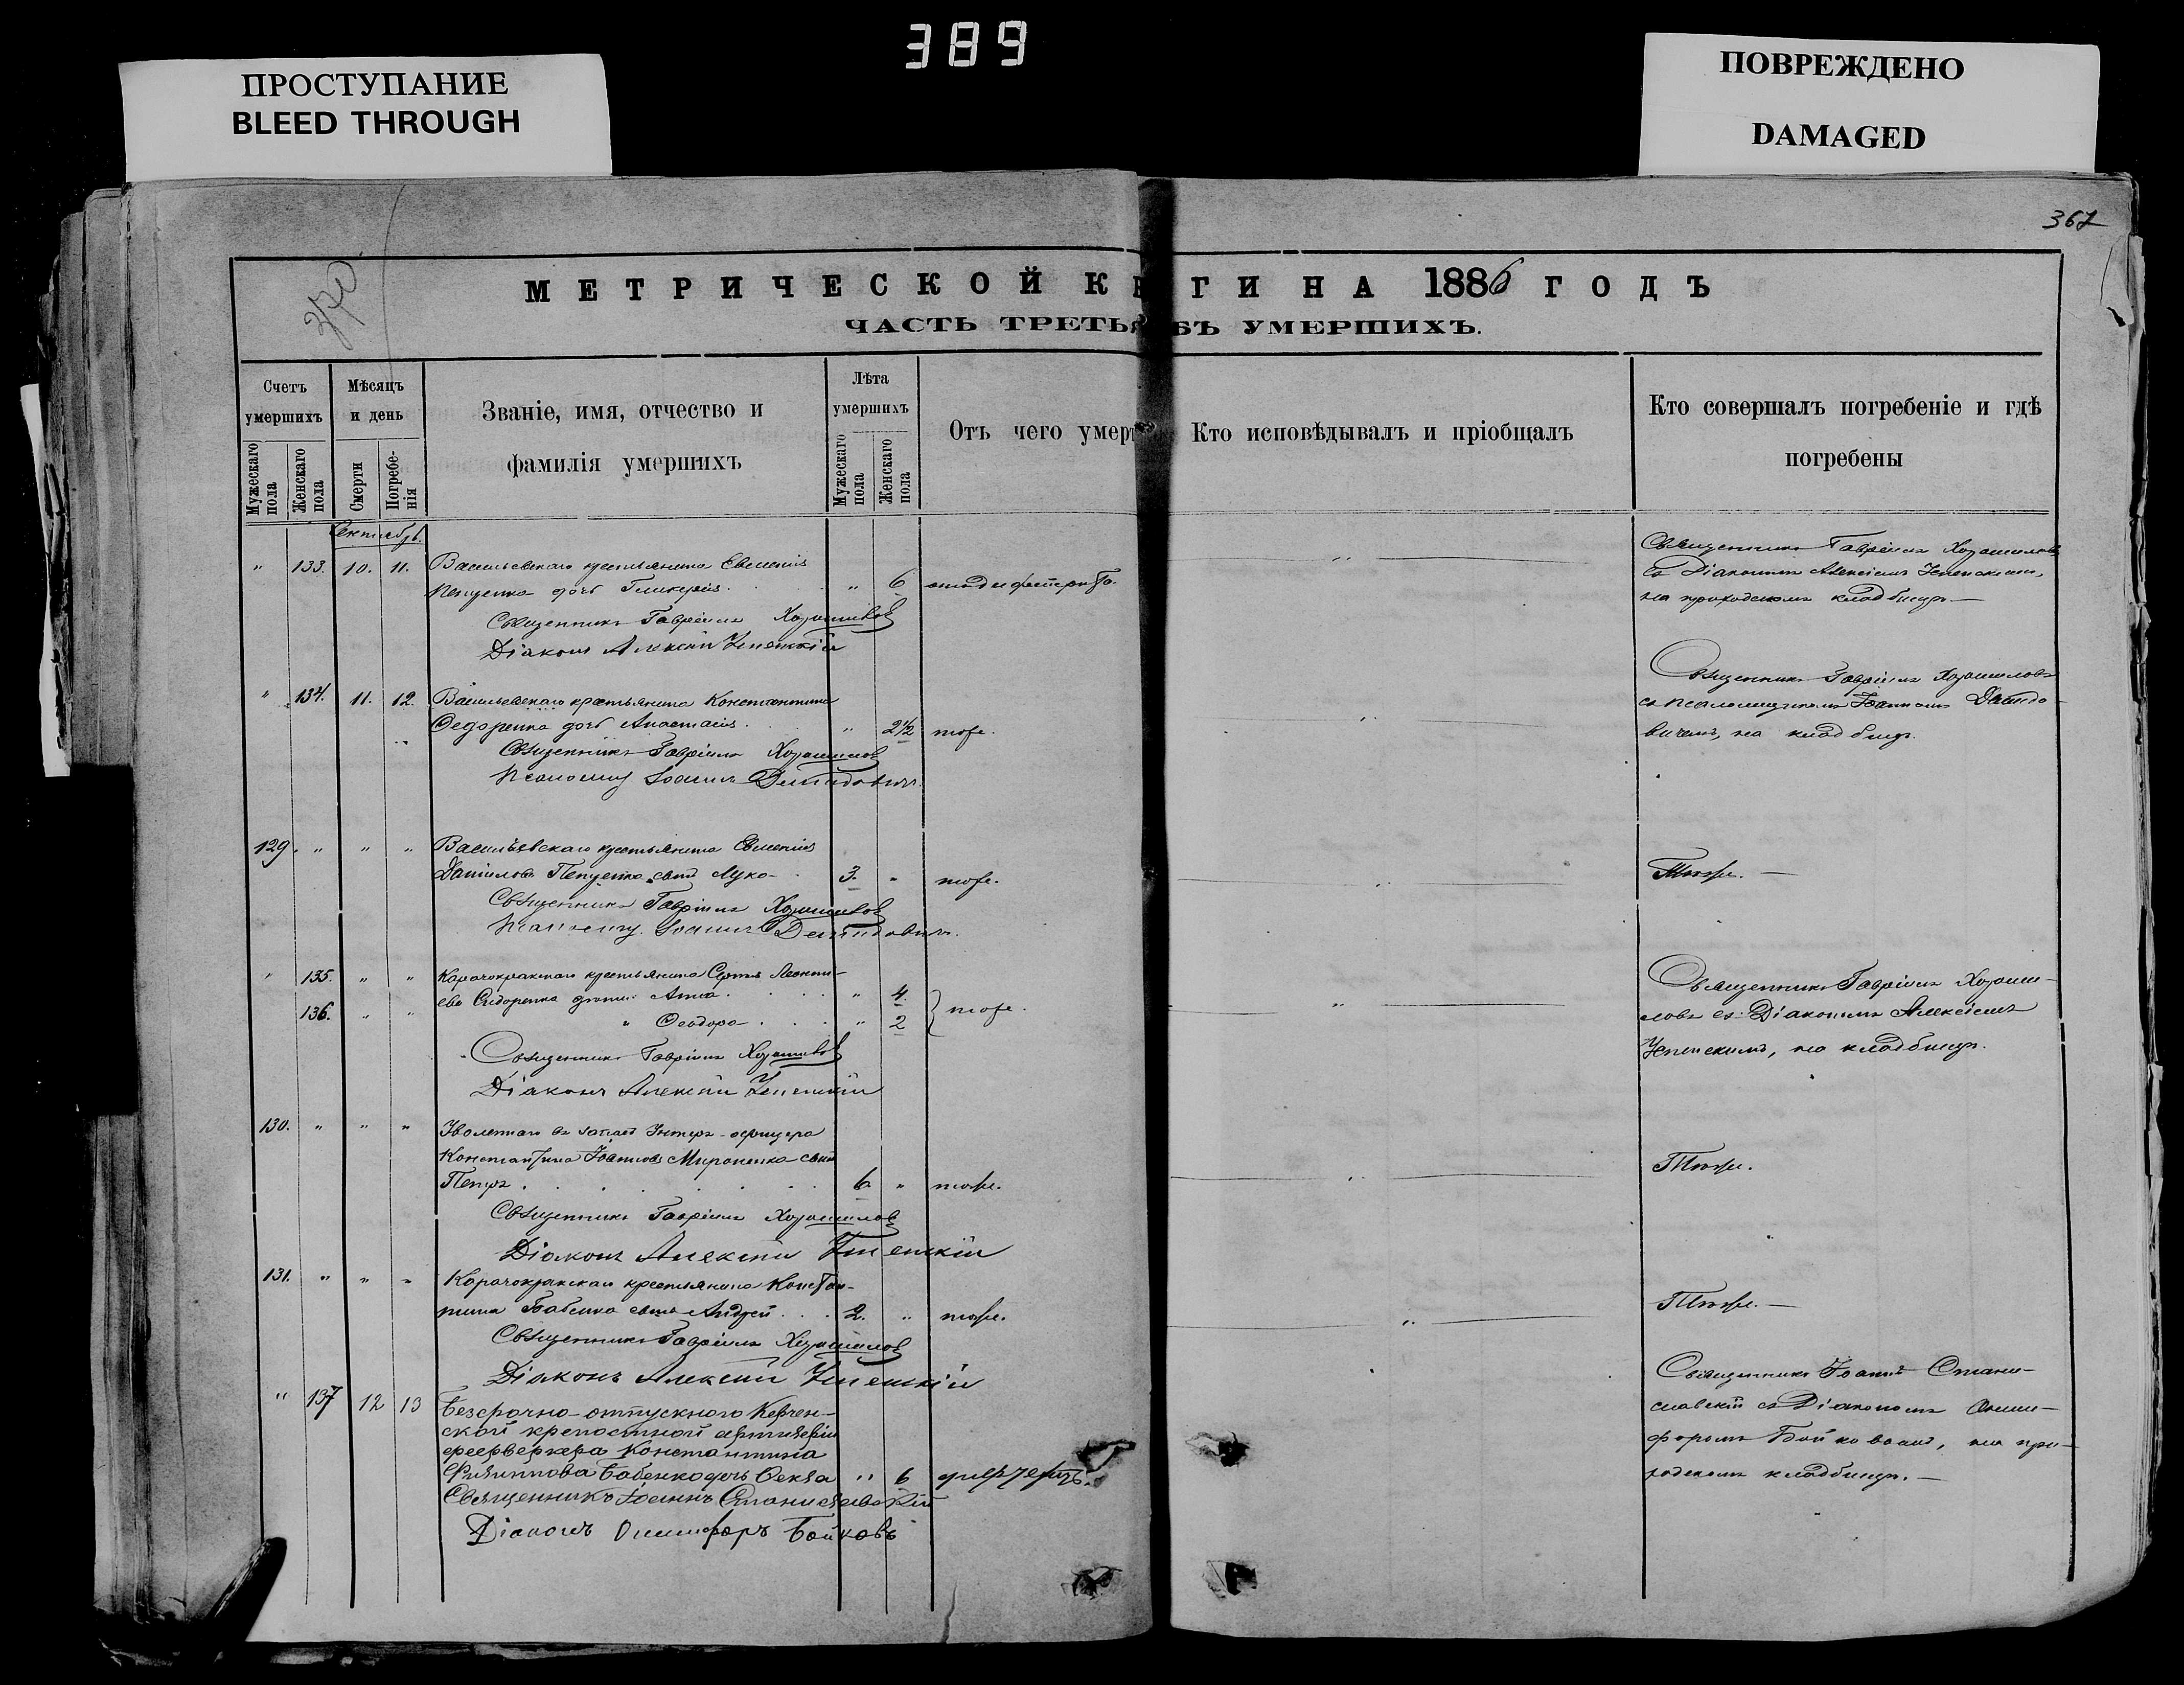 389
ПРОСТУПАНИЕ
BLEED THROUGH
ПОВРЕЖДЕНО
DAMAGED
367
МЕТРИЧЕСКОЙ К ГИ НА 1886 ГОДЪ
ЧАСТЬ ТРЕТЬЯ БЪ УМЕРШИХЪ.
Счетъ умершихъ
Мужескаго пола
Женскаго пола
Мѣсяцъ и день
Смерти
Погребе-нія
Званіе, имя, отчество и
фамилія умершихъ
Лѣта умершихъ
Мужескаго пола
Женскаго пола
Отъ чего умер
Кто исповѣдывалъ и пріобщалъ
Кто совершалъ погребеніе и гдѣ
погребены
Сентябрь.
" 133. 10. 11. Васильевскаго крестьянина Евменія
дочь Гликерія. " 6 отъ дифтерита.
Священникъ Гавріилъ Хорошиловъ
Діаконъ Алексій Успенскій
Священникъ Гавріилъ Хорошиловъ
съ Діакономъ Алексіемъ Успенскимъ,
на приходскомъ кладбищѣ.—
" 134. 11. 12. Васильевскаго крестьянина Константина
Федоренка дочь Анастасія. " 2½ тоже.
Священникъ Гавріилъ Хорошиловъ
Псаломщ Іоаннъ Демидовичъ.
Священникъ Гавріилъ Хорошиловъ
съ псаломщикомъ Іоанномъ Демидо-
вичемъ, на кладбищѣ.
129. " " " Васильевскаго крестьянина Евменія
Данилова сынъ Лука 3. " тоже.
Священникъ Гавріилъ Хорошиловъ
Псаломщ. Іоаннъ Демидовичъ.
Тѣже.—
" 135. " " Карачокракскаго крестьянина Сергія Леонти-
ева Сидоренка дѣти: Анна " 4.
136. " " " Ѳеодора " 2 } тоже.
Священникъ Гавріилъ Хорошиловъ
Діаконъ Алексій Успенскій
Священникъ Гавріилъ Хороши-
ловъ съ Діакономъ Алексіемъ
Успенскимъ, на кладбищѣ.
130. " " " Уволеннаго въ запасъ Унтеръ-офицера
Константина Іоаннова Мироненка сынъ
Петръ 6 " тоже.
Священникъ Гавріилъ Хорошиловъ
Діаконъ Алексій Успенскій
Тѣже.
131. " " " Карачокракскаго крестьянина Констан-
тина Бабенка сынъ Андрей 2. " тоже.
Священникъ Гавріилъ Хорошиловъ
Діаконъ Алексій Успенскій
Тѣже.—
" 137 12 13 Безсрочно-отпускного Керчен-
ской крепостной артилеріи
феерверкера Константина
Филиппова Бабенко дочь Ѳекла " 6
Священникъ Іоаннъ Станиславскій
Діаконъ Онисифоръ Бойковъ
Священникъ Іоаннъ Стани-
славскій съ Діакономъ Ониси-
форомъ Бойковымъ, на при-
ходскомъ кладбищѣ.—